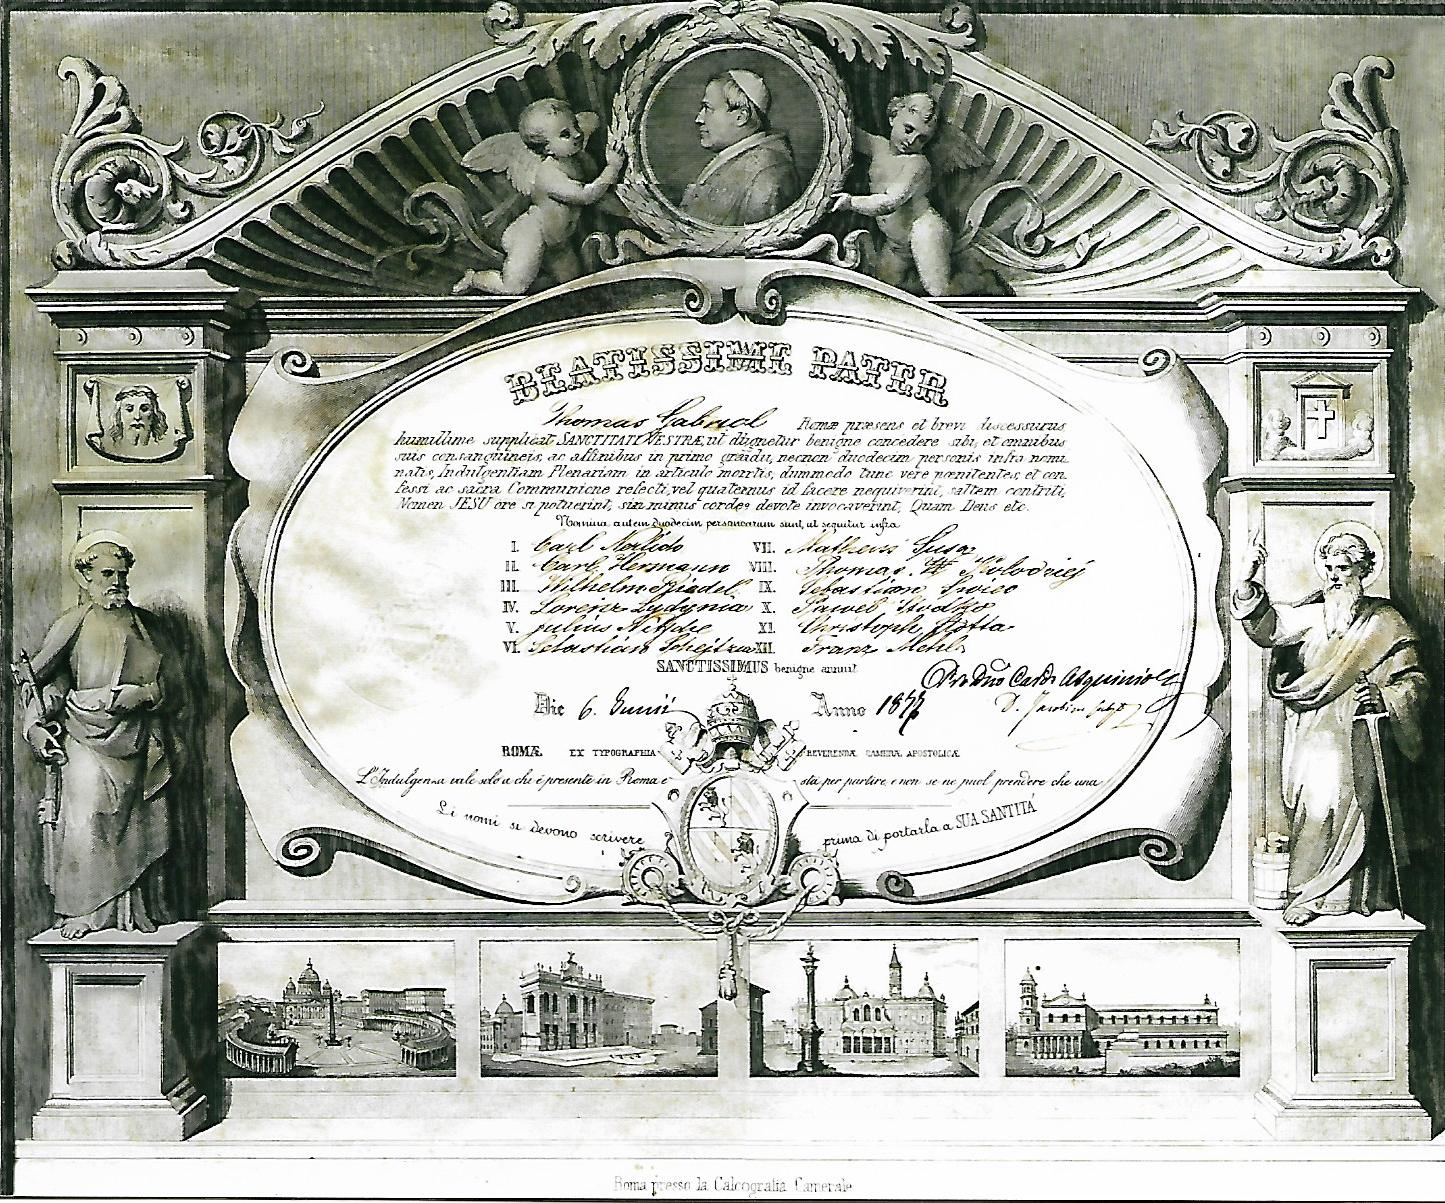 BEATISSIME PATER
Thomas Gabriel Romæ præsens et brevi discessurus
humillime supplicat SANCTITATI VESTRÆ, ut dignetur benigne concedere sibi, et omnibus
suis consanguineis, ac affinibus in primo gradu, necnon duodecim personis infra nomi
natis, Indulgentiam Plenariam in articulo mortis, dummodo tunc vere pœnitentes, et con
fessi ac sacra Communione refecti, vel quatenus id facere nequiverint, saltem contriti,
Nomen JESU ore si potuerint, sin minus corde devote invocaverint, Quam Deus etc.
Nomina autem duodecim personarum sunt, ut sequitur infra
I. Carl VII. Susa
II. Carl Hermann VIII. Thomas Kolodziej
III. Wilhelm IX. Sebastian
IV. Lorenz X. Pawel
V. Julius Nitzche XI. Christoph Slotta
VI. Sebastian XII. Franz
SANCTISSIMUS benigne annuit
Pro Dno Card.
Die 6. Junii Anno 1877
ROMÆ. EX TYPOGRAPHIA REVERENDÆ CAMERÆ APOSTOLICÆ
L'Indulgenza vale solo a chi è presente in Roma e sta per partire, e non se ne puol prendere che una
Li nomi si devono scrivere prima di portarla a SUA SANTITÀ
Roma presso la Calcografia Camerale